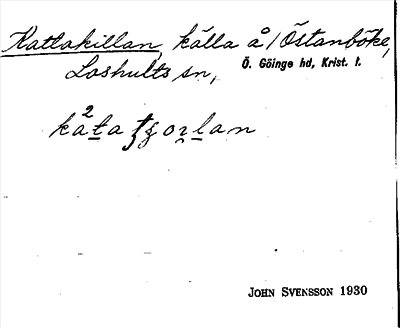 Kattakillan, källa å / Östanböke,
Loshults sn, Ö. Göinge hd, Krist. l.
JOHN SVENSSON 1930